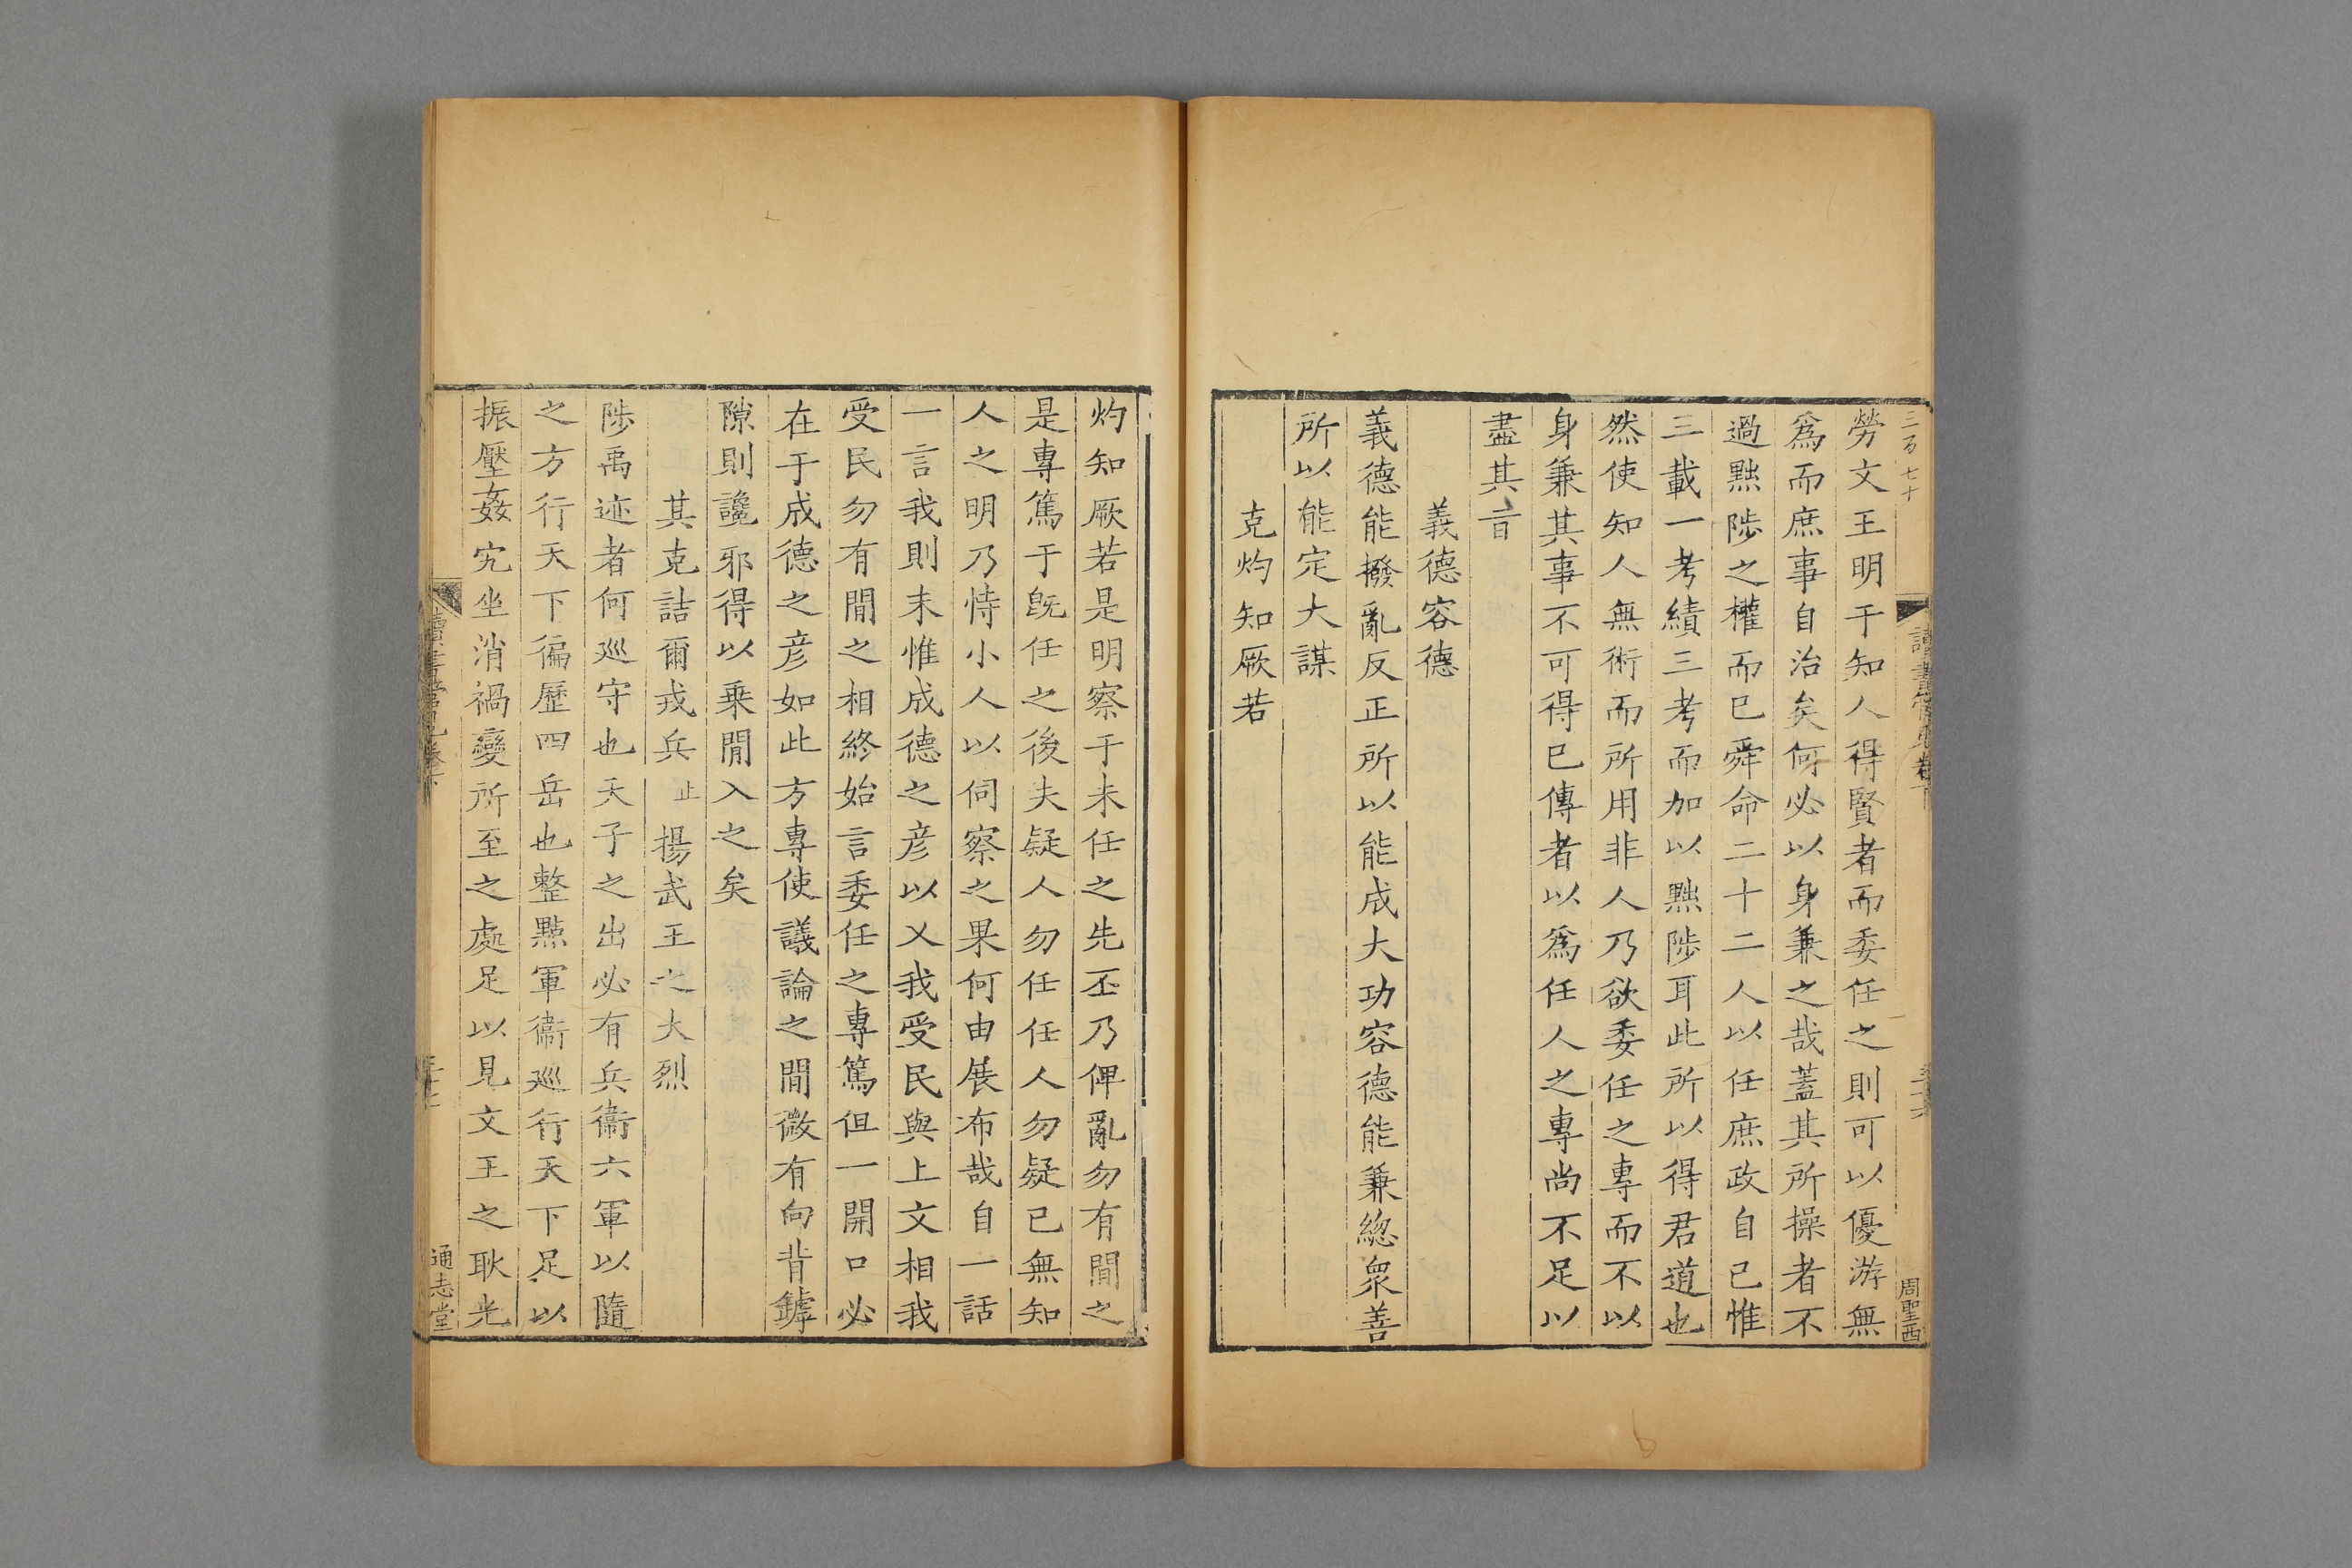 三百七十
讀書管見卷下
周聖西
勞文王明于知人得賢者而委任之則可以優游無
爲而庶事自治矣何必以身兼之哉蓋其所操者不
過黜陟之權而已舜命二十二人以任庶政自已惟
三載一考績三考而加以黜陟耳此所以得君道也
然使知人無術而所用非人乃欲委任之專而不以
身兼其事不可得已傳者以爲任人之專尚不足以
盡其旨
義德容德
義德能撥亂反正所以能成大功容德能兼緫衆善
所以能定大謀
克灼知厥若
灼知厥若是明察于未任之先丕乃俾亂勿有間之
是專篤于旣任之後夫疑人勿任任人勿疑已無知
人之明乃恃小人以伺察之果何由展布哉自一話
一言我則末惟成德之彦以乂我受民與上文相我
受民勿有間之相終始言委任之專篤但一開口必
在于成德之彦如此方專使議論之間微有向背罅
隙則讒邪得以乗間入之矣
其克詰爾戎兵止揚武王之大烈
陟禹迹者何廵守也天子之出必有兵衞六軍以隨
之方行天下徧歷四岳也整點軍衞廵行天下足以
振壓姦宄坐消禍變所至之處足以見文王之耿光
讀書管見卷下
通志堂